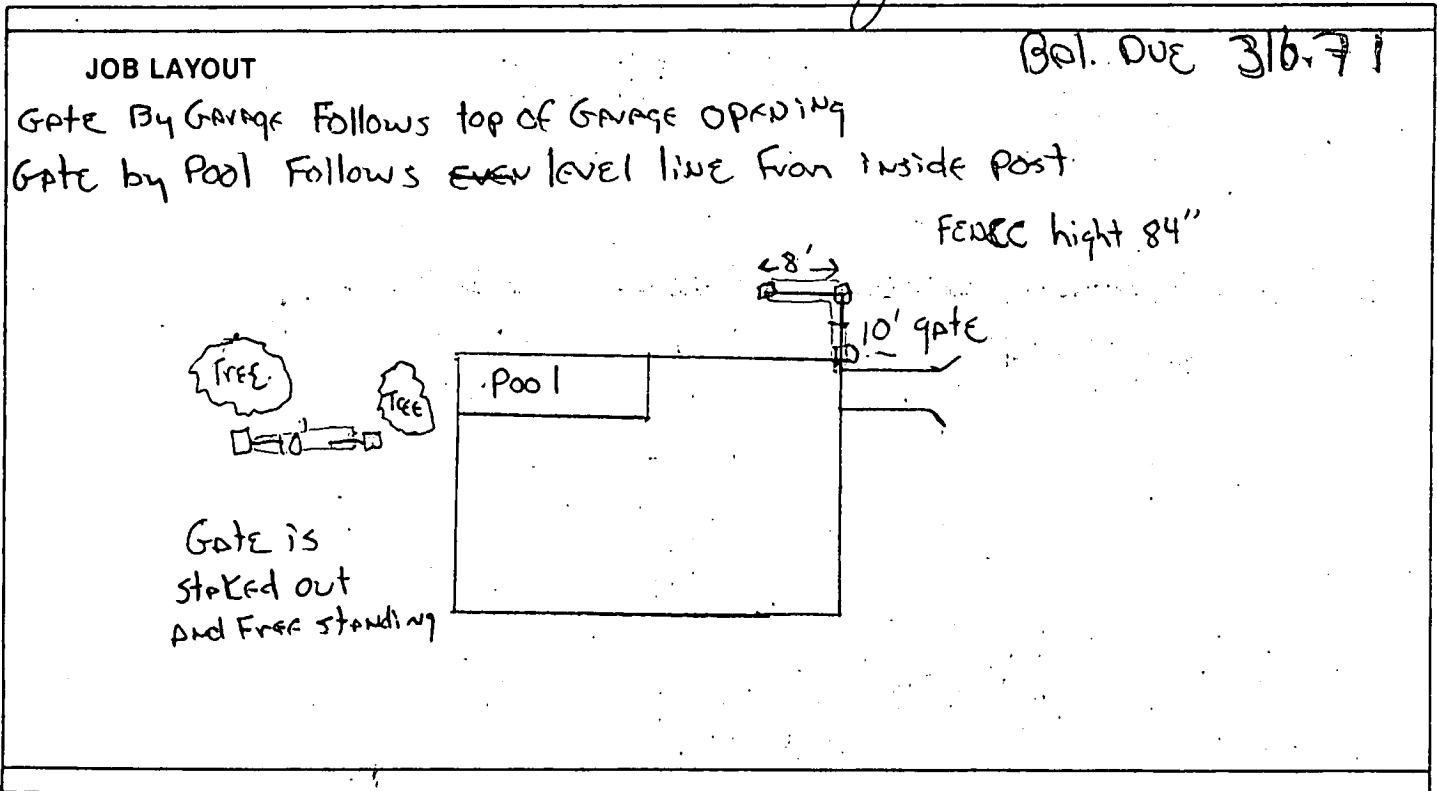 Bal. Due 316.71
JOB LAYOUT
Gate By Garage Follows top of Garage opening
Gate by Pool Follows even level line From inside post
Fence hight 84"
8'
10' gate
Tree
Tree
Pool
10'
Gate is
staked out
and Free standing